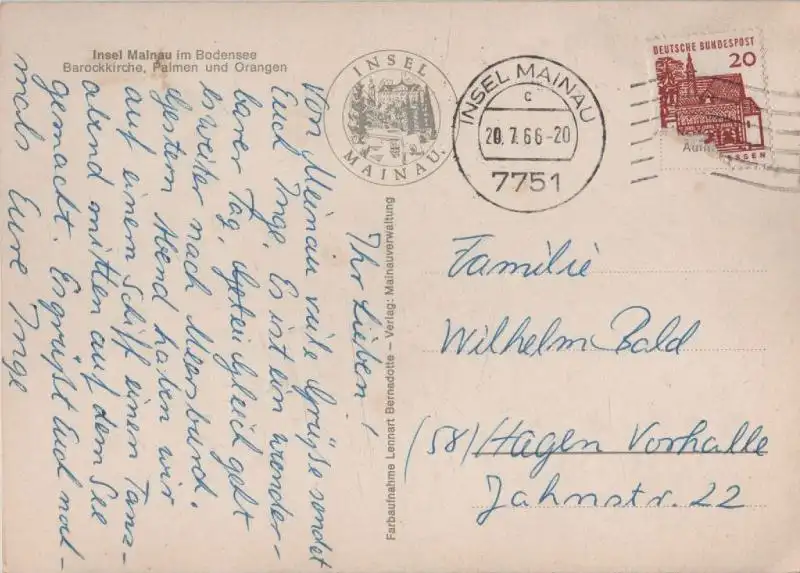 Insel Mainau im Bodensee
Barockkirche, Palmen und Orangen
INSEL
MAINAU
INSEL MAINAU
c
20.7.66-20
7751
DEUTSCHE BUNDESPOST
20
ESSEN
Ihr Lieben!
Von Meinau viele Grüße sendet
Euch Inge. Es ist ein wunder-
barer Tag. Gleich geht
es weiter nach Meersburg.
Gestern Abend haben wir
auf einem Schiff einen Tanz-
abend mitten auf dem See
gemacht. Es grüßt Euch noch-
mals Eure Inge
Farbaufnahme Lennart Bernadotte – Verlag: Mainauverwaltung
Familie
Wilhelm Bald
(58) Hagen Vorhalle
Jahnstr. 22